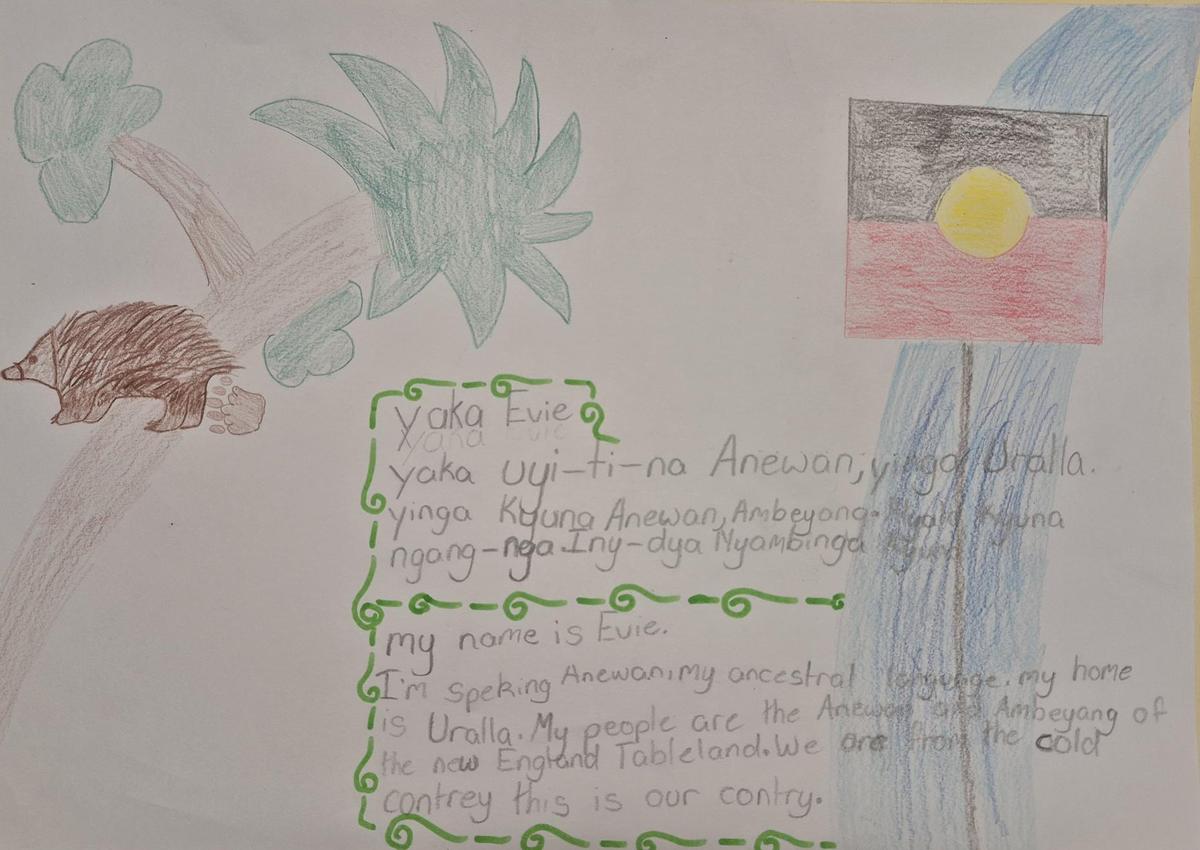 yaka Evie
yaka uyi-ti-na Anewan, yinga Uralla.
yinga Kyuna Anewan, Ambeyang. Kyuna
ngang-nga. Iny-dya Nyambinga
my name is Evie.
I'm speking Anewan, my ancestral language. my home
is Uralla. My people are the Anewan and Ambeyang of
the new England Tableland. We are from the cold
contrey this is our contry.